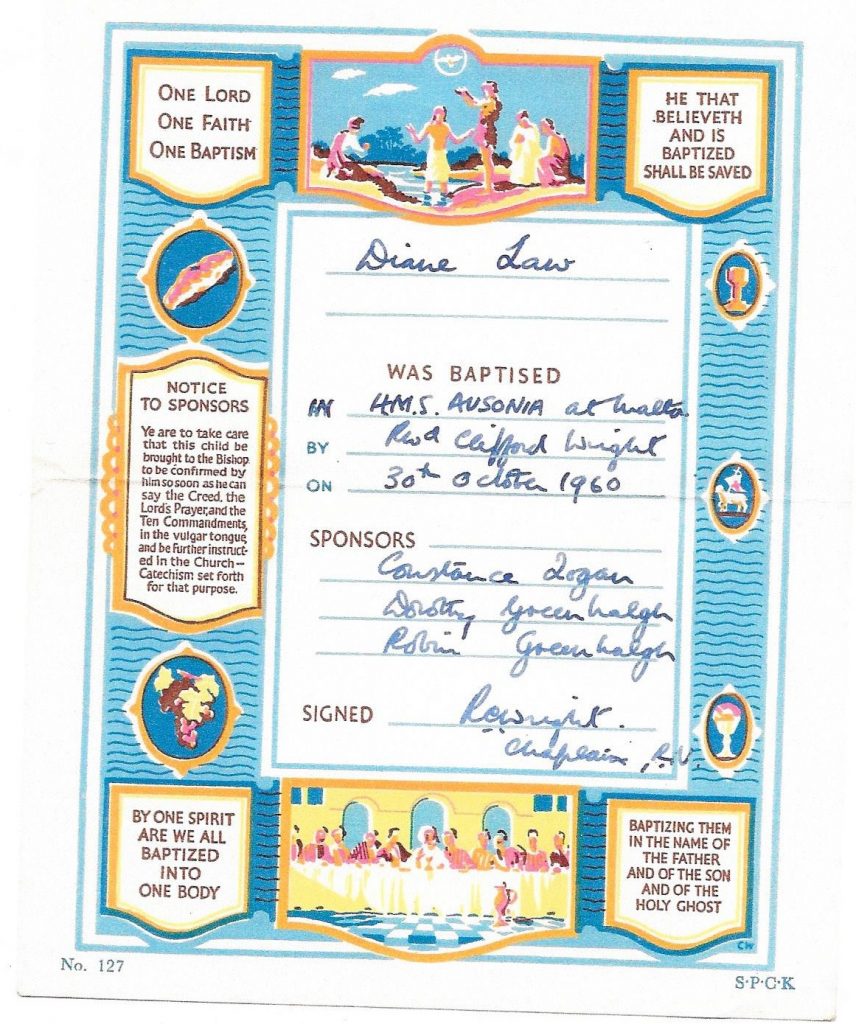 ONE LORD
ONE FAITH
ONE BAPTISM
HE THAT
BELIEVETH
AND IS
BAPTIZED
SHALL BE SAVED
Diane Law
WAS BAPTISED
IN H.M.S. AUSONIA at Malta
BY Revd Clifford Wright
ON 30th October 1960
SPONSORS
Constance Logan
Dorothy Greenhalgh
Robin Greenhalgh
SIGNED RCWright.
Chaplain, R.N.
NOTICE
TO SPONSORS
Ye are to take care
that this child be
brought to the Bishop
to be confirmed by
him so soon as he can
say the Creed, the
Lord's Prayer, and the
Ten Commandments,
in the vulgar tongue,
and be further instruct-
ed in the Church-
Catechism set forth
for that purpose.
BY ONE SPIRIT
ARE WE ALL
BAPTIZED
INTO
ONE BODY
BAPTIZING THEM
IN THE NAME OF
THE FATHER
AND OF THE SON
AND OF THE
HOLY GHOST
CW
No. 127
S·P·C·K